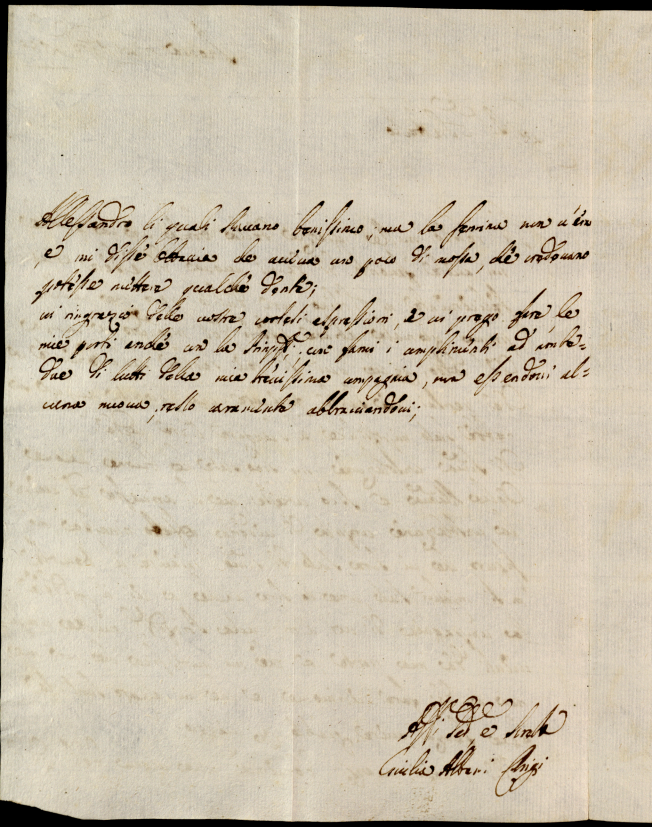 Alessandro li quali stavano benissimo; ma la serina non v'era
e mi disse Ottavia che aveva un poco di mossa, che credevano
potesse mettere qualche dente;
vi ringrazio delle vostre cortesi espressioni, e vi prego fare le
mie parti anche con la, con farvi i complimenti ad ambe-
due di tutti della mia compagnia, non essendovi al-
cuna nuova, resto caramente abbracciandovi;
Aff. e
Cicilia Alberi Chigi